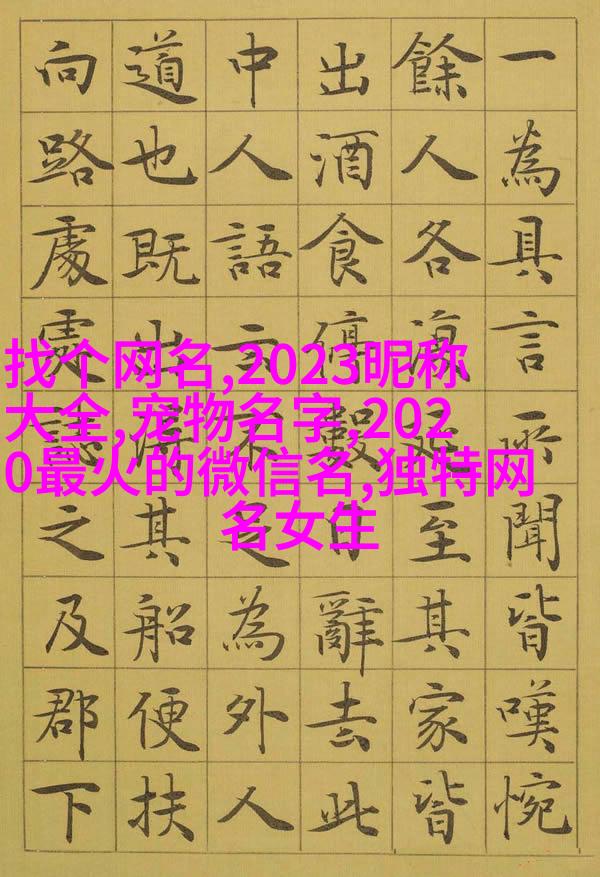 一為具言所聞皆嘆惋
餘人各復延至其家皆
出酒食停數日辭去此
中人語云不足為外人
道也既出得其船便扶
向路處處誌之及郡下
找个网名,2023昵称
大全,宠物名字,202
0最火的微信名,独特网
名女生